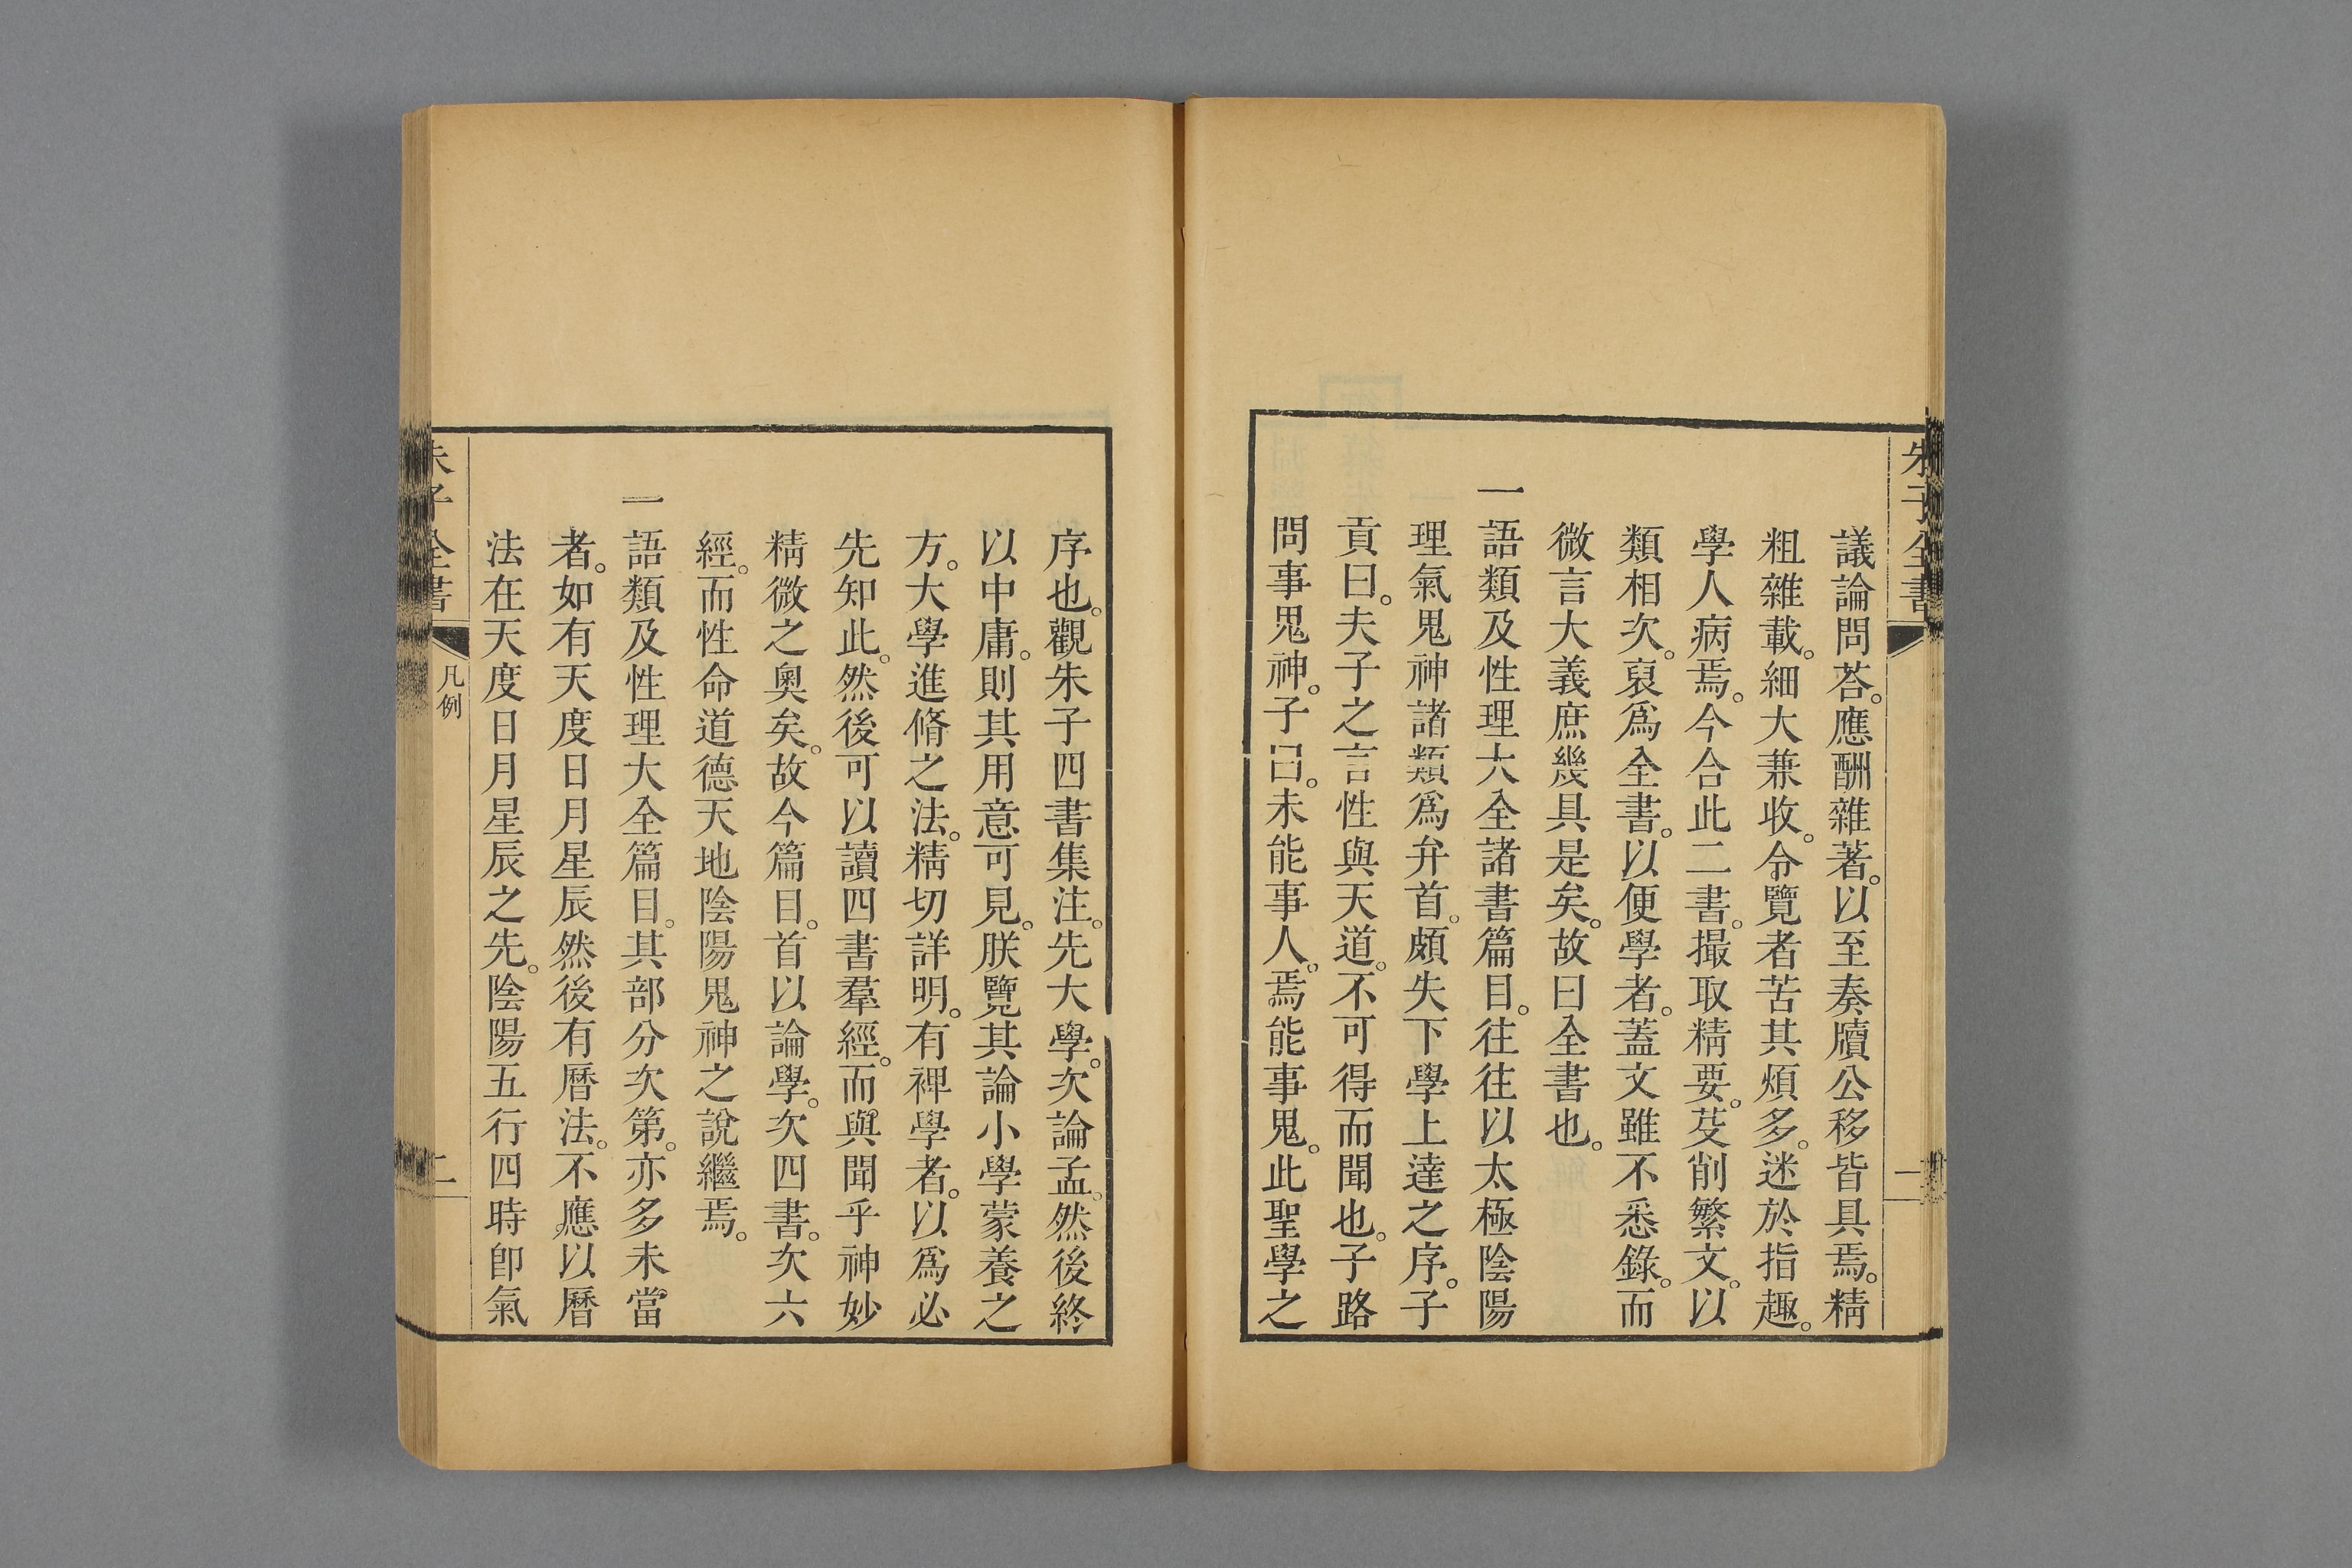 朱子全書
一
議論問荅。應酬雜著。以至奏牘公移皆具焉。精
粗雜載。細大兼收。令覽者苦其煩多。迷於指趣。
學人病焉。今合此二書。撮取精要。芟削繁文。以
類相次。裒爲全書。以便學者。蓋文雖不悉錄。而
微言大義庶幾具是矣。故曰全書也。
一語類及性理大全諸書篇目。往往以太極陰陽
理氣鬼神諸類爲弁首。頗失下學上達之序。子
貢曰。夫子之言性與天道。不可得而聞也。子路
問事鬼神。子曰。未能事人。焉能事鬼。此聖學之
序也。觀朱子四書集注。先大學。次論孟。然後終
以中庸。則其用意可見。朕覽其論小學蒙養之
方。大學進脩之法。精切詳明。有裨學者。以爲必
先知此。然後可以讀四書羣經。而與聞乎神妙
精微之奧矣。故今篇目。首以論學。次四書。次六
經。而性命道德天地陰陽鬼神之說繼焉。
一語類及性理大全篇目。其部分次第。亦多未當
者。如有天度日月星辰然後有曆法。不應以曆
法在天度日月星辰之先。陰陽五行四時卽氣
朱子全書
凡例
二